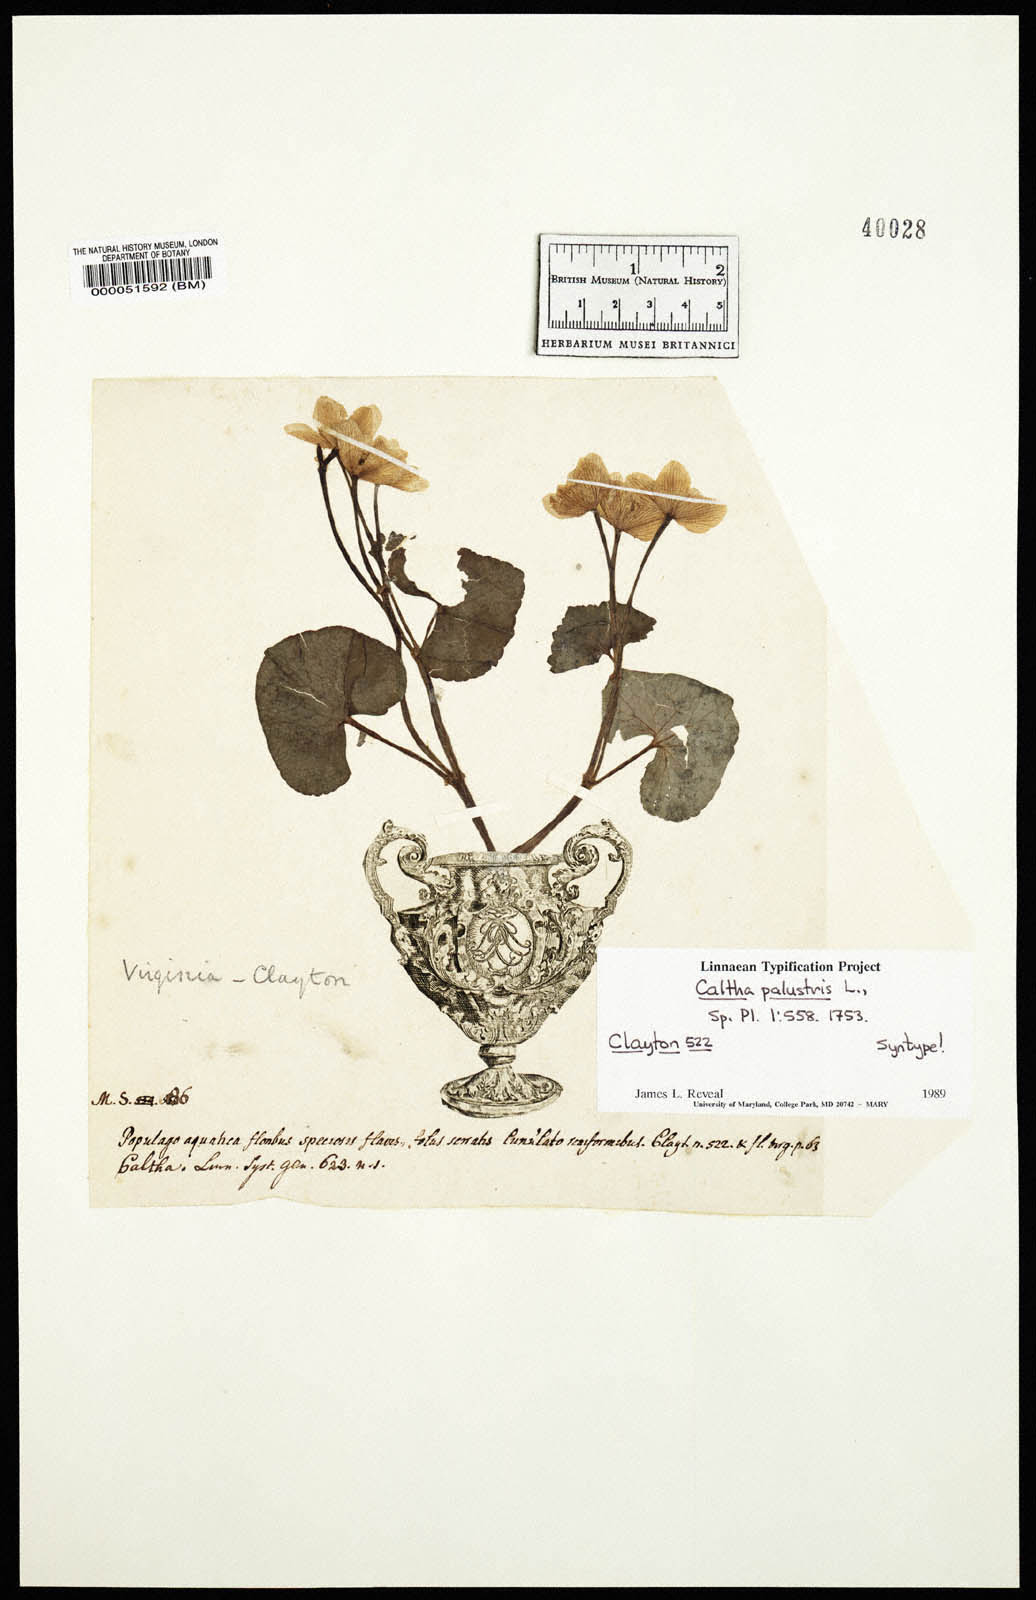 40028
THE NATURAL HISTORY MUSEUM, LONDON
DEPARTMENT OF BOTANY
000051592 (BM)
1 2
BRITISH MUSEUM (NATURAL HISTORY)
1 2 3 4 5
HERBARIUM MUSEI BRITANNICI
Virginia – Clayton
Linnaean Typification Project
Caltha palustris L.,
Sp. Pl. 1:558. 1753.
Clayton 522
Syntype!
James L. Reveal 1989
University of Maryland, College Park, MD 20742 – MARY
M. S.
Populago aquatica floribus speciosis flavis, foliis serratis lunulato reniformibus. Clayt. n. 522. & fl. virg. p. 63
Caltha. Linn. Syst. gen. 623. n. 1.